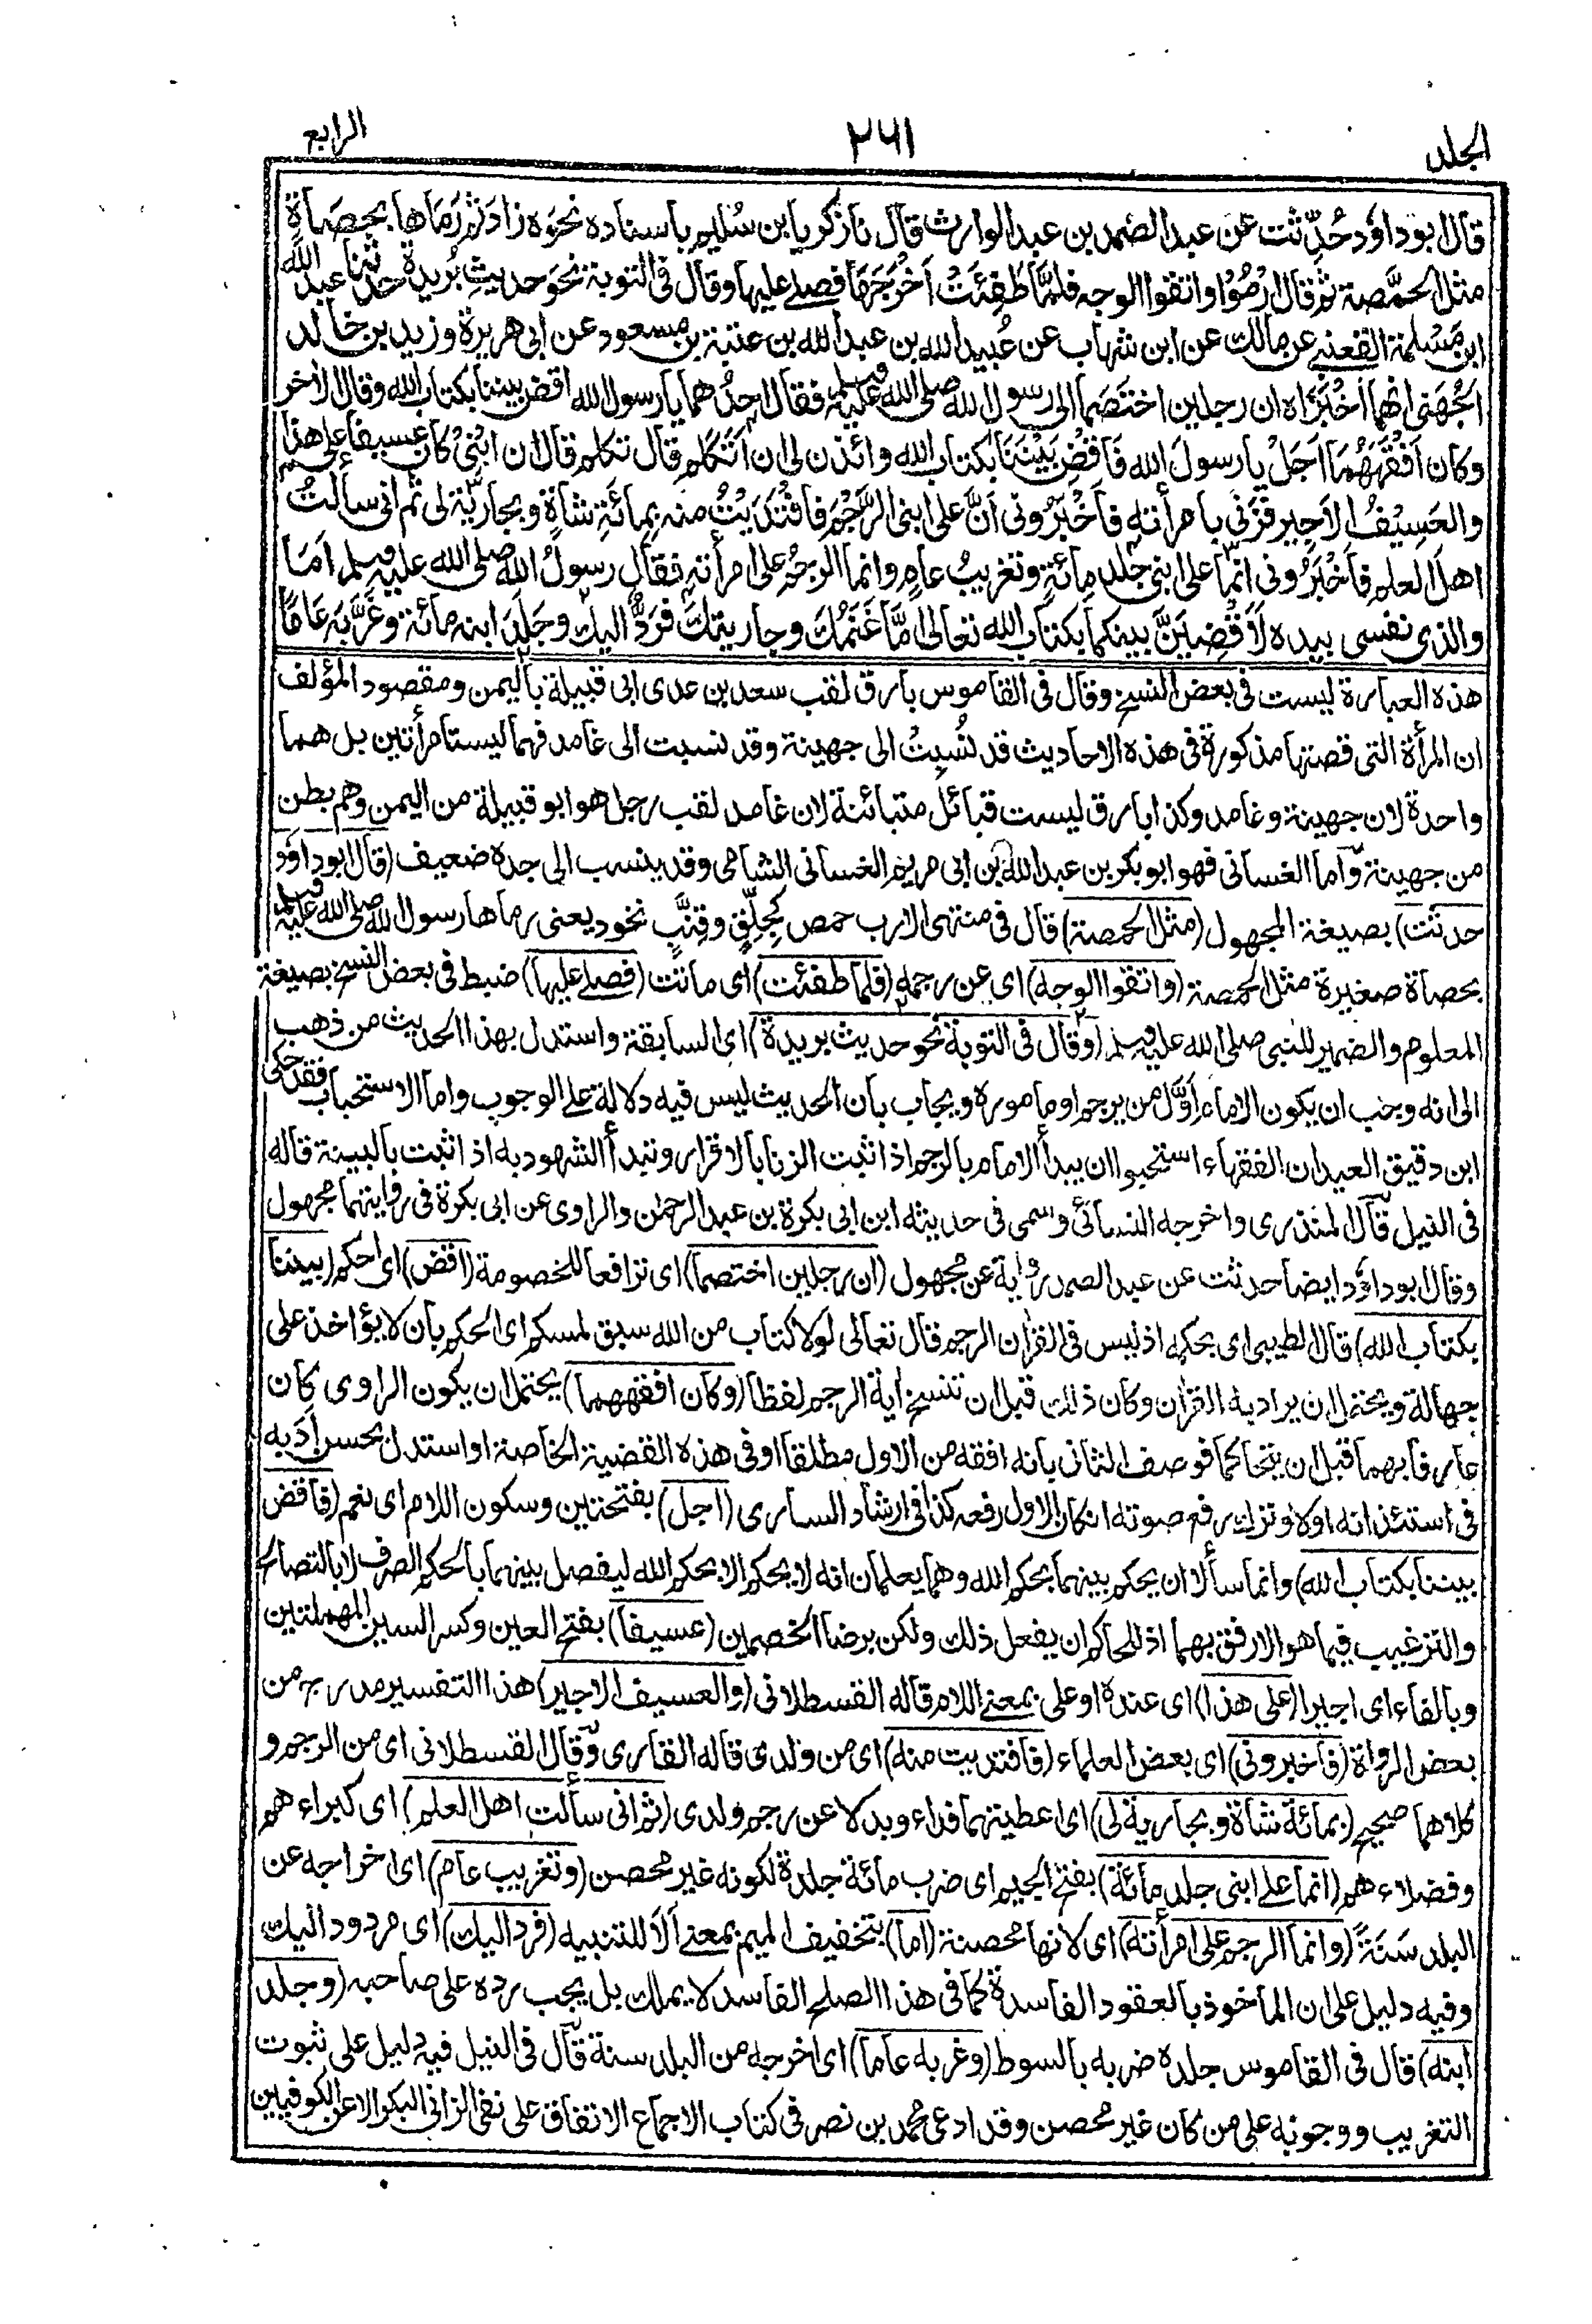 الجلد ٢٦١ الرابع
قال ابوداؤد حُدِّثت عن عبد الصمد بن عبد الوارث قال نا زكريا بن سُلَيم باسناده نحوه زاد ثم رَمَاها بحصاةٍ
مثل الحمَّصة ثم قال ارْمُوْا واتقوا الوجه فلمَّا طَفِئَتْ اَخْرَجَهَا فصلى عليها وقال فى التوبة نحو حديثِ بُريدة حدثنا عبد الله
ابن مَسْلمة القعنبى عن مالك عن ابن شهاب عن عُبيد الله بن عبد الله بن عتبة بن مسعود عن ابى هريرة وزيد بن خالد
الجُهَنى انهما اَخْبَرَاه ان رجلين اختَصَما الى رسول الله صلى الله عليه وسلم فقال احدُهما يا رسول الله اقض بيننا بكتاب الله وقال الاٰخر
وكان اَفْقَهَهُمَا اَجَلْ يا رسولَ الله فَاقْضِ بَيْنَنَا بكتاب الله وائذن لى ان اَتَكَلم قال تكلم قال ان ابْنِىْ كان عَسِيفا على هذا
والعَسِيْفُ الاَجِير فزَنٰى بامرأته فاَخْبَرُونى اَنَّ على ابنى الرَّجْمَ فافْتَدَيْتُ منه بِمائَةِ شاةٍ وبجاريةٍ لى ثم انى سألتُ
اهلَ العلم فاَخْبَرُونى انما على ابنى جلدُ مِائةٍ وتغريبُ عامٍ وانما الرجمُ على امرأته فقال رسولُ الله صلى الله عليه وسلم اَمَا
والذى نفسى بيده لَاَقْضِيَنَّ بينكما بكتاب الله تعالى امَّا غَنَمُكَ وجاريتك فرَدٌّ اليك وجَلَدَ ابنه مائة وغَرَّبَه عَامًا
هذه العبارة ليست فى بعض النسخ وقال فى القاموس بارق لقب سعد بن عدى ابى قبيلة باليمن ومقصود المؤلف
ان المرأة التى قصتها مذكورة فى هذه الاحاديث قد نُسِبتْ الى جهينة وقد نسبت الى غامد فهما ليستا مرأتين بل هما
واحدة لان جهينة وغامد وكذا بارق ليست قبائل متبائنة لان غامد لقب رجل هو ابو قبيلة من اليمن وهم بطن
من جهينة واما الغسانى فهو ابوبكر بن عبد الله بن ابى مريم الغسانى الشامى وقد ينسب الى جده ضعيف (قال ابوداؤد
حدثت) بصيغة المجهول (مثل الحمصة) قال فى منتهى الارب حمص كَجِلِّقٍ وقِنَّبٍ نخود يعنى رماها رسول الله صلى الله عليه وسلم
بحصاة صغيرة مثل الحمصة (واتقوا الوجه) اى عن رجمه (فلما طفئت) اى ماتت (فصلى عليها) ضبط فى بعض النسخ بصيغة
المعلوم والضمير للنبى صلى الله عليه وسلم (وقال فى التوبة نحو حديث بريدة) اى السابقة واستدل بهذا الحديث من ذهب
الى انه وجب ان يكون الامام اَوَّل من يرجم او مامورہ ويجاب بان الحديث ليس فيه دلالة على الوجوب واما الاستحباب فقد حكى
ابن دقيق العيد ان الفقهاء استحبوا ان يبدأ الامام بالرجم اذا ثبت الزنا بالاقرار وتبدأ الشهود به اذا ثبت بالبينة قاله
فى النيل قال المنذرى واخرجه النسائى وسمى فى حديثه ابن ابى بكرة بن عبد الرحمٰن والراوى عن ابى بكرة فى روايتهما مجهول
وقال ابوداؤد ايضا حدثت عن عبد الصمد رواية عن مجهول (ان رجلين اختصما) اى ترافعا للخصومة (اقض) اى احكم (بيننا
بكتاب الله) قال الطيبى اى بحكمه اذ ليس فى القراٰن الرجم قال تعالى لولا كتاب من الله سبق لمسكم اى الحكم بان لا يؤاخذ على
جهالة ويحتمل ان يراد به القراٰن وكان ذلك قبل ان تنسخ اٰية الرجم لفظا (وكان افقههما) يحتمل ان يكون الراوى كان
عارفا بهما قبل ان يتحاكما فوصف الثانى بانه افقه من الاول مطلقا او فى هذه القضية الخاصة او استدل بحسن اَدَبه
فى استئذانه اولا وترك رفع صوته ان كان الاول رفعه كذا فى ارشاد السارى (اجل) بفتحتين وسكون اللام اى نعم (فاقض
بيننا بكتاب الله) وانما سألا ان يحكم بينهما بحكم الله وهما يعلمان انه لا يحكم الا بحكم الله ليفصل بينهما بالحكم الصرف لا بالتصالح
والترغيب فيما هو الارفق بهما اذ للحاكم ان يفعل ذلك ولكن برضا الخصمين (عسيفا) بفتح العين وكسر السين المهملتين
وبالفاء اى اجيرا (على هذا) اى عنده او على بمعنى اللام قاله القسطلانى (والعسيف الاجير) هذا التفسير مدرج من
بعض الرواة (فاخبرونى) اى بعض العلماء (فافتديت منه) اى من ولدى قاله القارى وقال القسطلانى اى من الرجم و
كلاهما صحيح (بمائة شاة وبجارية لى) اى اعطيتهما فداء وبدلا عن رجم ولدى (ثم انى سألت اهل العلم) اى كبراءهم
وفضلاءهم (انما على ابنى جلد مائة) بفتح الجيم اى ضرب مائة جلدة لكونه غير محصن (وتغريب عام) اى اخراجه عن
البلد سَنَةً (وانما الرجم على امرأته) اى لانها محصنة (اما) بتخفيف الميم بمعنى اَلَا للتنبيه (فرد اليك) اى مردود اليك
وفيه دليل على ان الماخوذ بالعقود الفاسدة كما فى هذا الصلح الفاسد لا يملك بل يجب رده على صاحبه (وجلد
ابنه) قال فى القاموس جلده ضربه بالسوط (وغربه عاما) اى اخرجه من البلد سنة قال فى النيل فيه دليل على ثبوت
التغريب ووجوبه على من كان غير محصن وقد ادعى محمد بن نصر فى كتاب الاجماع الاتفاق على نفى الزانى البكر الا عن الكوفيين